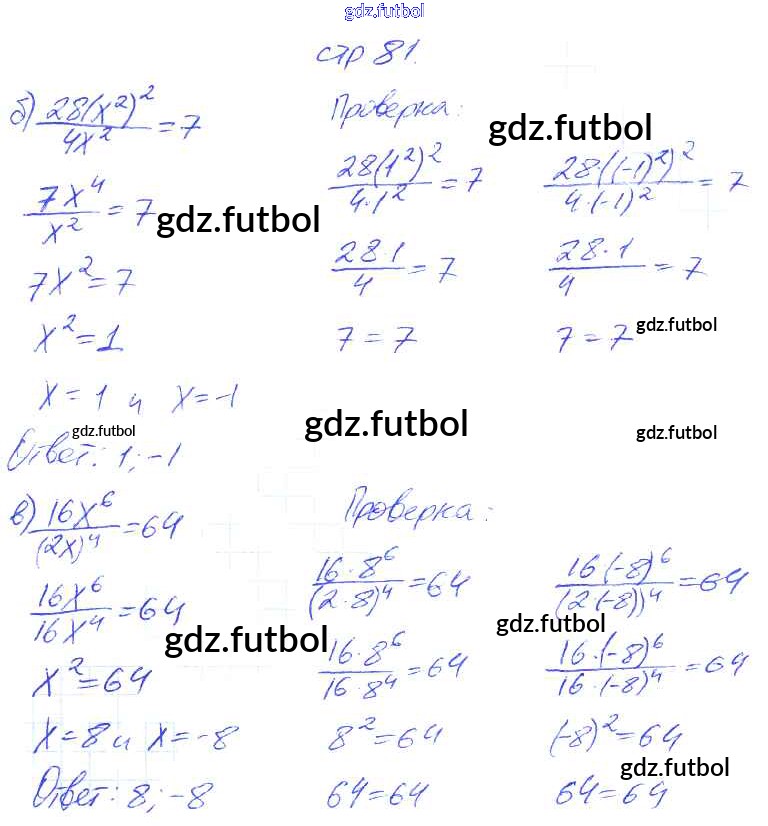 gdz.futbol
стр 81.
б) 28(x²)²/4x² = 7
7x⁴/x² = 7
7x² = 7
x² = 1
x = 1 и x = -1
Ответ: 1; -1
Проверка:
28(1²)²/4·1² = 7
28·1/4 = 7
7 = 7
28·((-1)²)²/4·(-1)² = 7
28·1/4 = 7
7 = 7
gdz.futbol
gdz.futbol
gdz.futbol
gdz.futbol
gdz.futbol
gdz.futbol
в) 16x⁶/(2x)⁴ = 64
16x⁶/16x⁴ = 64
x² = 64
x = 8 и x = -8
Ответ: 8; -8
Проверка:
16·8⁶/(2·8)⁴ = 64
16·8⁶/16·8⁴ = 64
8² = 64
64 = 64
16(-8)⁶/(2·(-8))⁴ = 64
16·(-8)⁶/16·(-8)⁴ = 64
(-8)² = 64
64 = 64
gdz.futbol
gdz.futbol
gdz.futbol